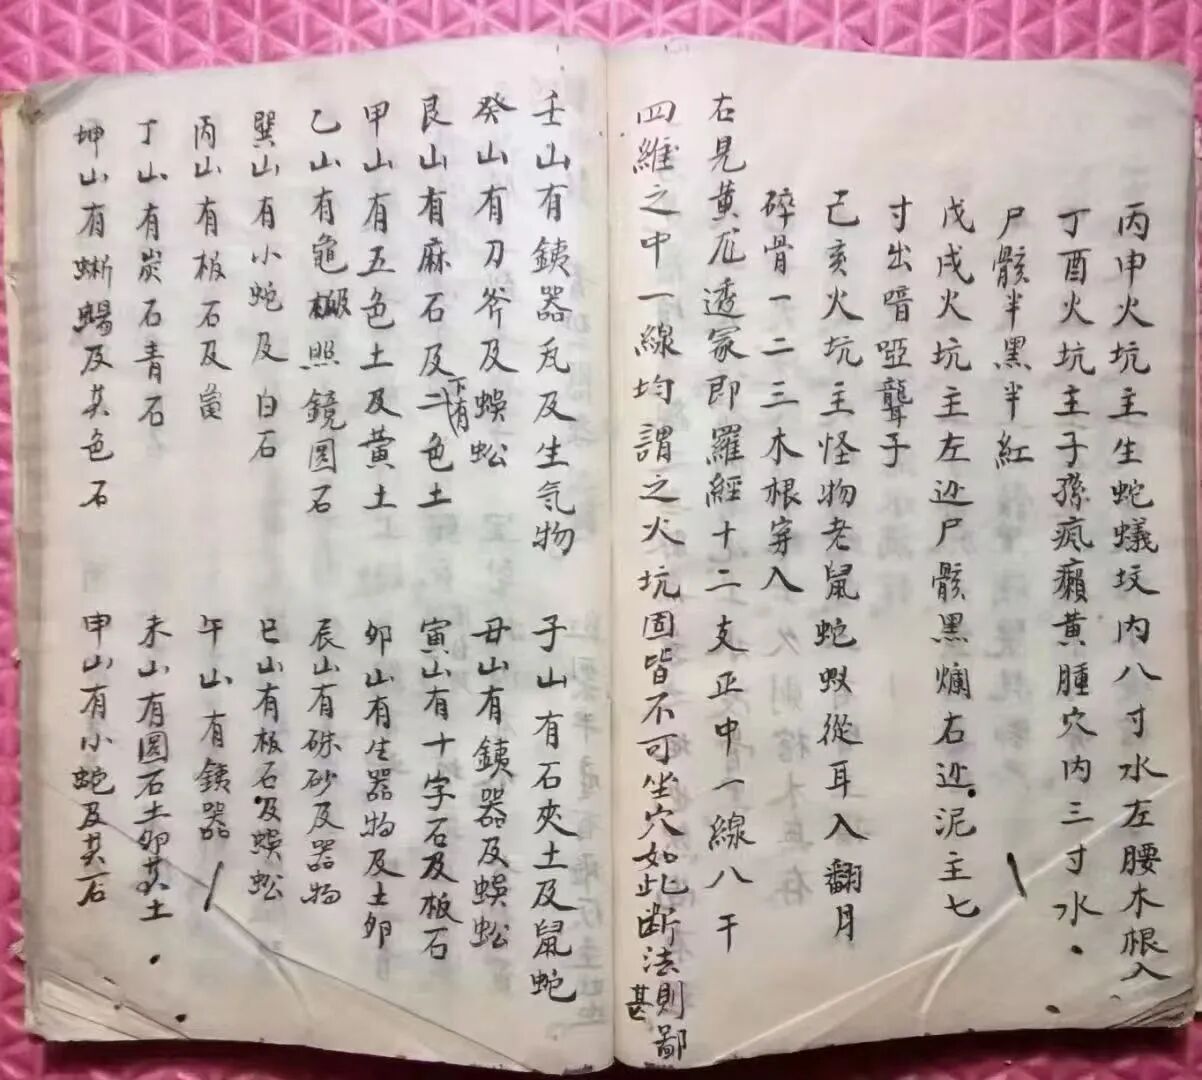 丙申火坑主生蛇蟻坟内八寸水左腰木根入
丁酉火坑主子孫疯癩黄腫穴内三寸水
尸骸半黑半紅
戊戌火坑主左边尸骸黑爛右边泥主七
寸出喑啞聾子
己亥火坑主怪物老鼠蛇蚁從耳入翻月
碎骨一二三木根穿入
右見黄尨透冢即羅經十二支正中一線八干
四維之中一線均謂之火坑固皆不可坐穴如此断法則甚鄙
壬山有銕器瓦及生気物
子山有石夾土及鼠蛇
癸山有刀斧及蜈蚣
丑山有銕器及蜈蚣
艮山有麻石及下有二色土
寅山有十字石及板石
甲山有五色土及黄土
卯山有生器物及土卵
乙山有龜板照鏡圓石
辰山有硃砂及器物
巽山有小蛇及白石
巳山有板石及蜈蚣
丙山有板石及
午山有銕器
丁山有炭石青石
未山有圓石土卵其土
坤山有蜥蜴及其色石
申山有小蛇及其石